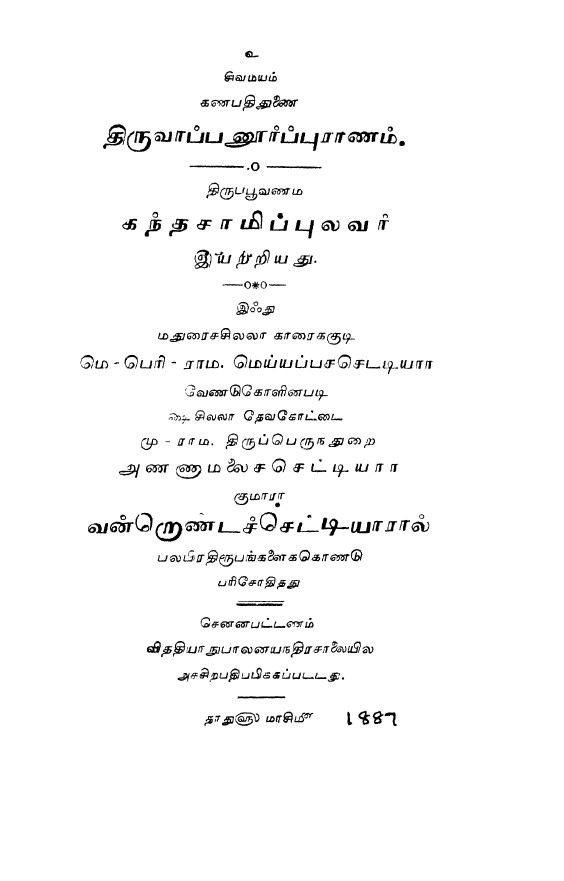 உ
சிவமயம்
கணபதிதுணை
திருவாப்பனூர்ப்புராணம்.
திருப்பூவணம
கந்தசாமிப்புலவர்
இயற்றியது.
இஃது
மதுரைசசிலலா காரைககுடி
மெ - பெரி - ராம. மெய்யப்பசசெடடியாரா
வேணடுகோளினபடி
௸ சிலலா தேவகோட்டை
மு - ராம. திருப்பெருநதுறை
அணணுமலைசசெட்டியாரா
குமாரா
வன்றொண்டச்செட்டியாரால்
பலபிரதிரூபங்களைககொணடு
பரிசோதிதது
சென்னபட்டணம்
விததியாநுபாலனயநதிரசாலையில
அசசிறபதிபபிககப்படடது.
தாது௵ மாசி௴ 1887